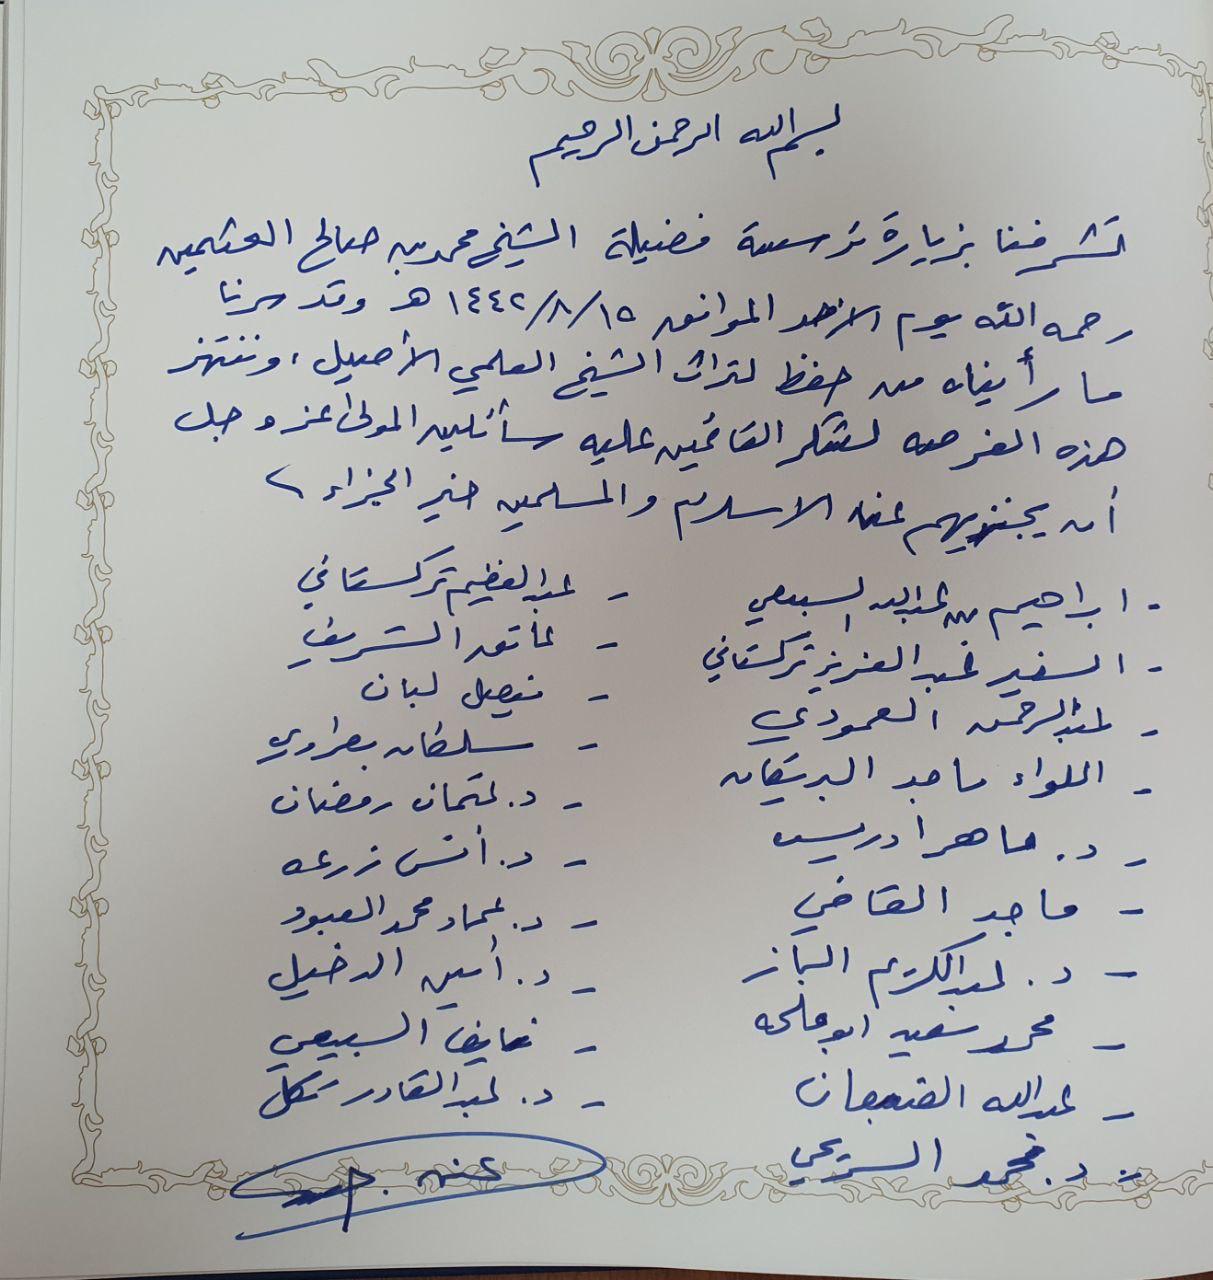 بسم الله الرحمن الرحيم
تشرفنا بزيارة مؤسسة فضيلة الشيخ محمد بن صالح العثيمين
رحمه الله يوم الأحد الموافق ١٤٤٢/٨/١٥ هـ وقد سرنا
ما رأيناه من حفظ لتراث الشيخ العلمي الأصيل، وننتهز
هذه الفرصه لشكر القائمين عليه سائلين المولى عز وجل
أن يجزيهم عن الاسلام والمسلمين خير الجزاء
- ابراهيم بن عبدالله السبيعي
- السفير عبدالعزيز تركستاني
- عبدالرحمن العمودي
- اللواء ماجد
- د. ماهر ادريس
- ماجد القاضي
- د. عبدالكريم الباز
- محمد سعيد ابوملحه
- عبدالله الضبعان
- د. محمد السريحي
- عبدالعظيم تركستاني
- عاتق الشريف
- فيصل لبان
- سلطان بصراوي
- د. عثمان رمضان
- د. أنس زرعه
- د. عماد محمد العبود
- د. أمين الدخيل
- نايف السبيعي
- د. عبدالقادر تنكل
عنهم